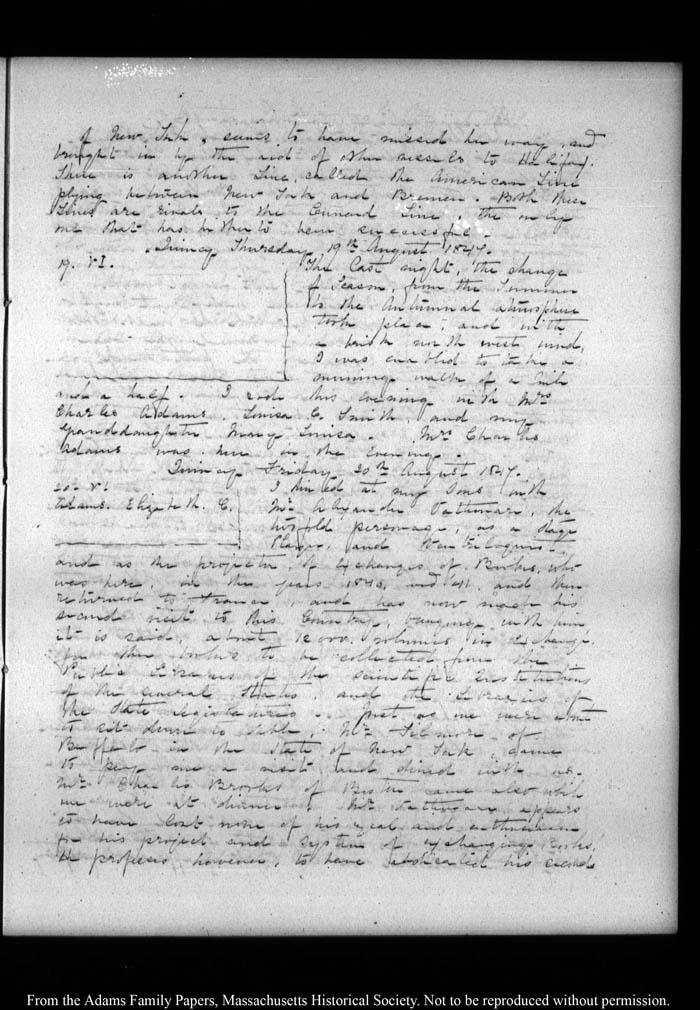 of New York, seems to have missed her way, and
brought in by the aid of other vessels to Halifax.
There is another Line, called the American Line
plying between New York and Bremen. Both these
Lines are rivals to the Cunard Line, the only
one that has hitherto been successful.
Quincy Thursday 19th August 1847.
19. VI.
The last night, the change
of Season, from the Summer
to the Autumnal atmosphere
took place; and with
a brisk north west wind,
I was enabled to take a
morning walk of a mile
and a half. I rode this evening with Mrs
Charles Adams, Louisa C. Smith, and my
Granddaughter Mary Louisa. Mrs Charles
Adams was here in the evening.
Quincy Friday 20th August 1847.
20. VI.
Adams. Elizabeth. C.
I dined at my Sons with
Mr Alexander Vattemare, the
twofold personage, as a Stage
Player, and Ventriloquist,
and as the projector of exchanges of Books, who
was here, in the years 1840, and 41. and then
returned to France, and has now made his
second visit to this Country, bringing with him
it is said, about 12000. volumes in exchange
for other books to be collected from the
Public Libraries of the scientific institutions
of the several States, and the Libraries of
the State legislatures. Just as we were about
to sit down to table, Mr Filmore of
Buffalo in the State of New York, came
to pay me a visit and dined with us.
Mr Charles Brooks of Boston came also while
we were at dinner. Mr Vattemare appears
to have lost none of his zeal and enthusiasm
for his project and system of exchanging Books.
He professes however, to have abdicated his second